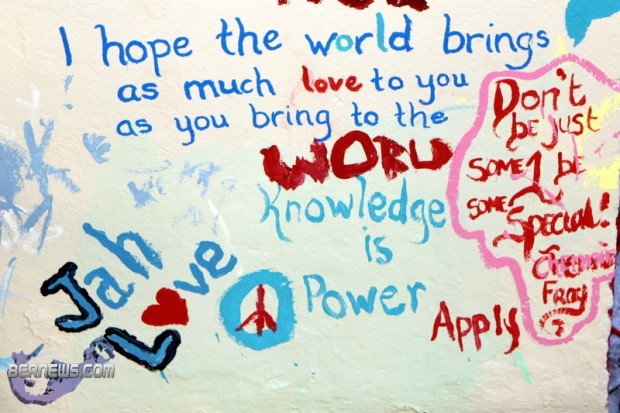 I hope the world brings
as much love to you
as you bring to the
WORLD
Knowledge
is
Power
Jah
Love
Don't
be just
some1 be
some
Special!
Fray
Apply
BERNEWS.COM